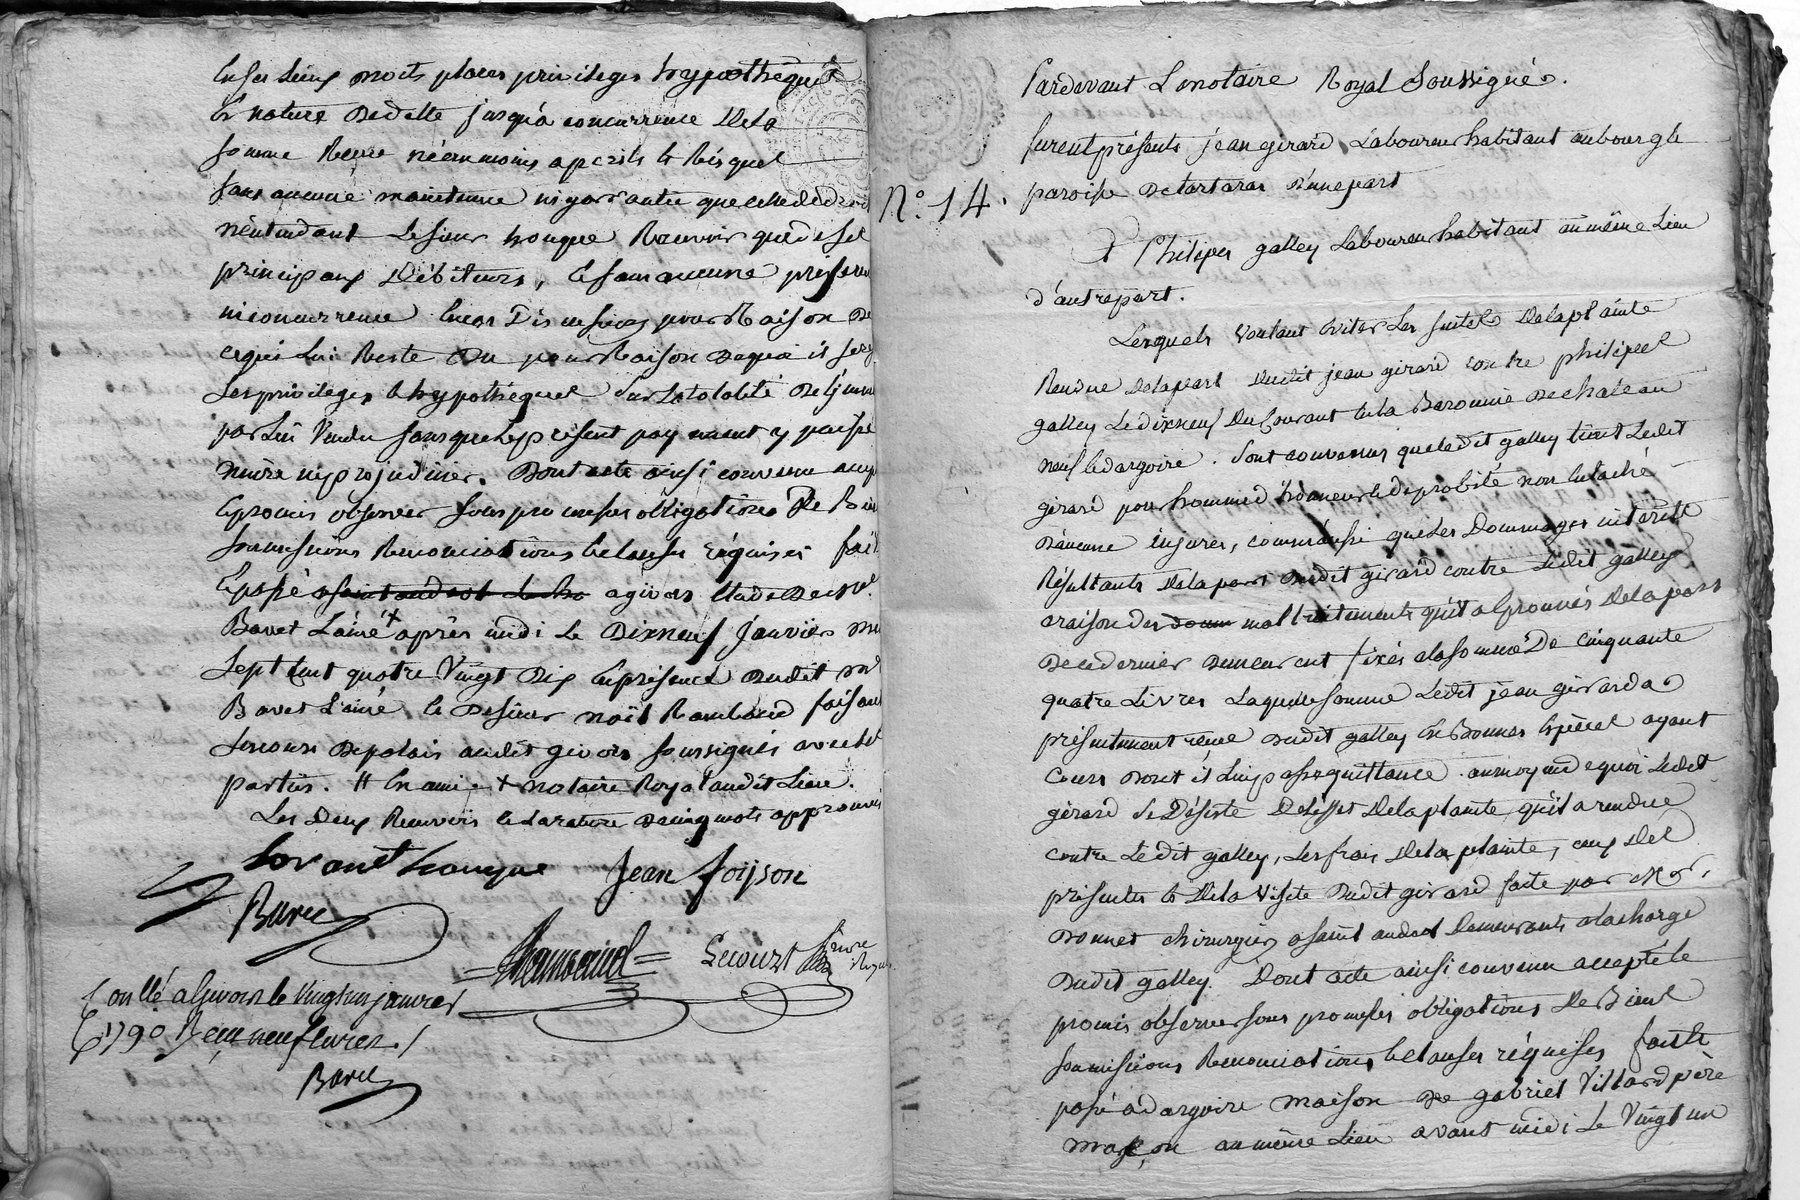 En ses lieux noits places privileges hypotheque
Et nature Dedette jusqu'a concurrence Dela
somme Recue néanmoins aperils et Risques
sans aucune maintenue ni garrantie que celle
n'entendant Lesieur honque Recevoir quedesel
principaux Débiteurs, Et sans aucune préferen
ni concurrence pour Raison De
cequi lui Reste Du pour Raison Dequoi il
Ses privileges Ethypotheques Sur Latotalité
par Lui Vendu sans que Le present payement y puisse
nuire ny prejudicier. Dont acte ainsi convenu
Et promis observer sous promesses obligations De Bien
soumissions Renonciations Et clauses réquises fait
Et passé a givors Etude De Me.
Bavet L'ainé + après midi Le Dixneuf Janvier
Sept Cent quatre Vingt Dix En présence Dudit
Bavet L'ainé, Et De Sieur noël Rambaud faisant
Son cours Depalais audit givors soussignés avec les
parties. # + notaire Royal audit Lieu.
Les Deux Renvois et La rature De cinq mots approuvés
honque Jean foijson
Rambaud Lecourt
Conllé a Givors le Vingt un janvier
1790 Reçu neuf livres.
N°. 14.
Pardevant Le notaire Royal Soussigné.
furent présents jean girard Laboureur habitant au bourg Et
paroisse De tartaras D'une part
Et Philipes galley Laboureur habitant au même Lieu
d'autre part.
Lesquels voulant Eviter Les suites Dela plainte
Rendue Delapart Dudit jean girard contre philipes
galley Le dixneuf Du Courant En la Baronnie De chateau
neuf Et dargoire. Sont convenus que Ledit galley tient Ledit
girard pour homme d'honneur Et de probité non Entaché
D'aucune injures, comm'aussi que Les Dommages interêts
Résultants Dela part Dudit girard contre Ledit galley
a raison des mal traitements qu'il a Eprouvés Dela part
De ce dernier Demeurent fixés a la somme De cinquante
quatre Livres Laquelle somme Ledit jean girard a
présentement Recue Dudit galley En Bonnes Espèces ayant
Cours Dont il Lui passe quittance. au moyen de quoi Ledit
girard Se Désiste Del'effet Dela plainte, qu'il a rendue
contre Ledit galley, Les frais Dela plainte, ceux Des
présentes Et Dela Visite Dudit girard faite par
Donnet chirurgien a saint andeol Demeurants a la charge
Dudit galley. Dont acte ainsi convenu accepté Et
promis observer sous promesses obligations De Biens
soumissions Renonciations Et clauses réquises fait Et
passé a dargoire maison De gabriel Villard père
maçon au même Lieu avant midi Le Vingt un